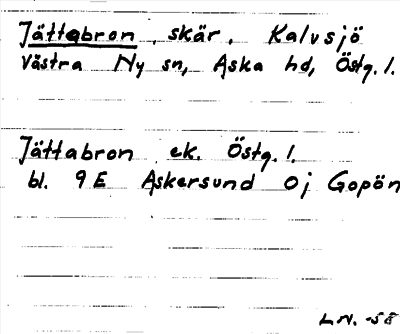 Jättabron, skär, Kalvsjö
Västra Ny sn, Aska hd, Östg. l.
Jättabron ek. Östg. l.
bl. 9 E Askersund 0 j Gopön
L N.